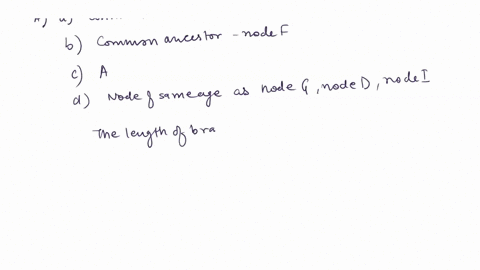 b) Common ancestor - node F
c) A
d) Node of same age as node G, node D, node I
The length of bra